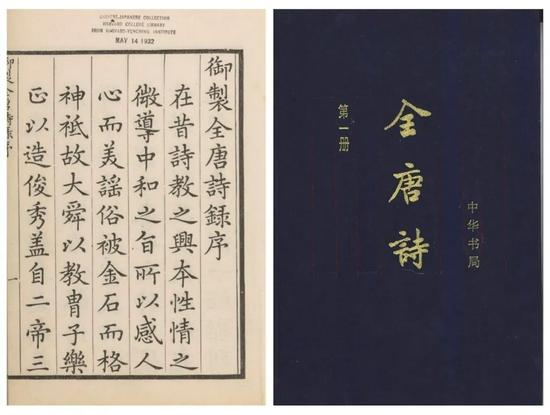 CHINESE-JAPANESE COLLECTION
HARVARD COLLEGE LIBRARY
FROM HARVARD-YENCHING INSTITUTE
MAY 14 1932
御製全唐詩錄序
在昔詩教之興本性情之
微導中和之旨所以感人
心而美謡俗被金石而格
神祇故大舜以教胄子樂
正以造俊秀盖自二帝三
御製全唐詩錄序
一
全唐詩
第一册
中华书局